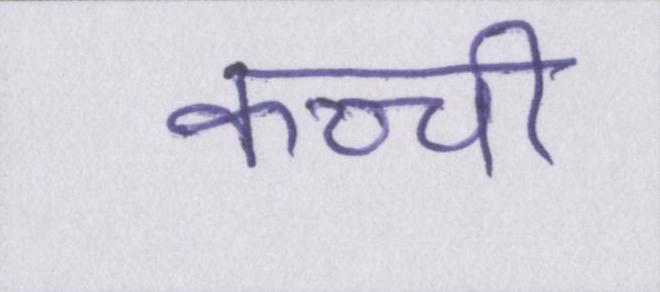 कच्ची